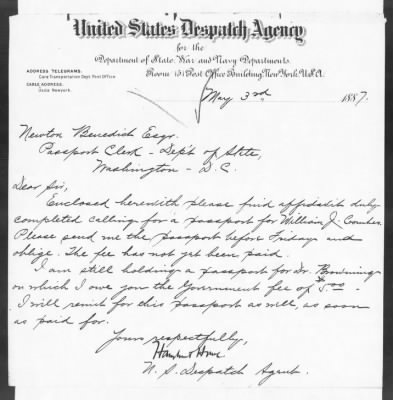 United States Despatch Agency
for the
Department of State, War and Navy Departments.
Room 151 Post Office Building, New York, U.S.A.
ADDRESS TELEGRAMS.
Care Transportation Dept Post Office
CABLE ADDRESS.
Usda Newyork.
May 3rd, 1887.
Newton Benedict Esqr.
Passport Clerk - Dept of State,
Washington - D.C.
Dear Sir,
Enclosed herewith please find affidavit duly
completed calling for a passport for William J.
Please send me the passport before Friday and
oblige. The fee has not yet been paid.
I am still holding a passport for Dr. Browning
on which I owe you the Government fee of $5.00
I will remit for this passport as well, as soon
as paid for.
Yours respectfully,
U.S. Despatch Agent.